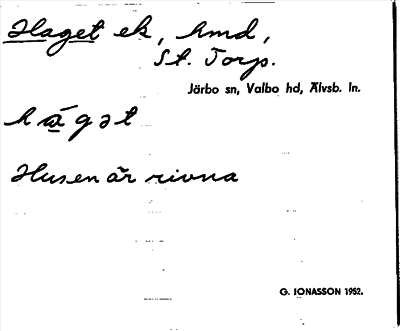 Haget ek, hmd,
St. Torp.
Järbo sn, Valbo hd, Älvsb. ln.
hāgət
Husen är rivna
G. IONASSON 1952.